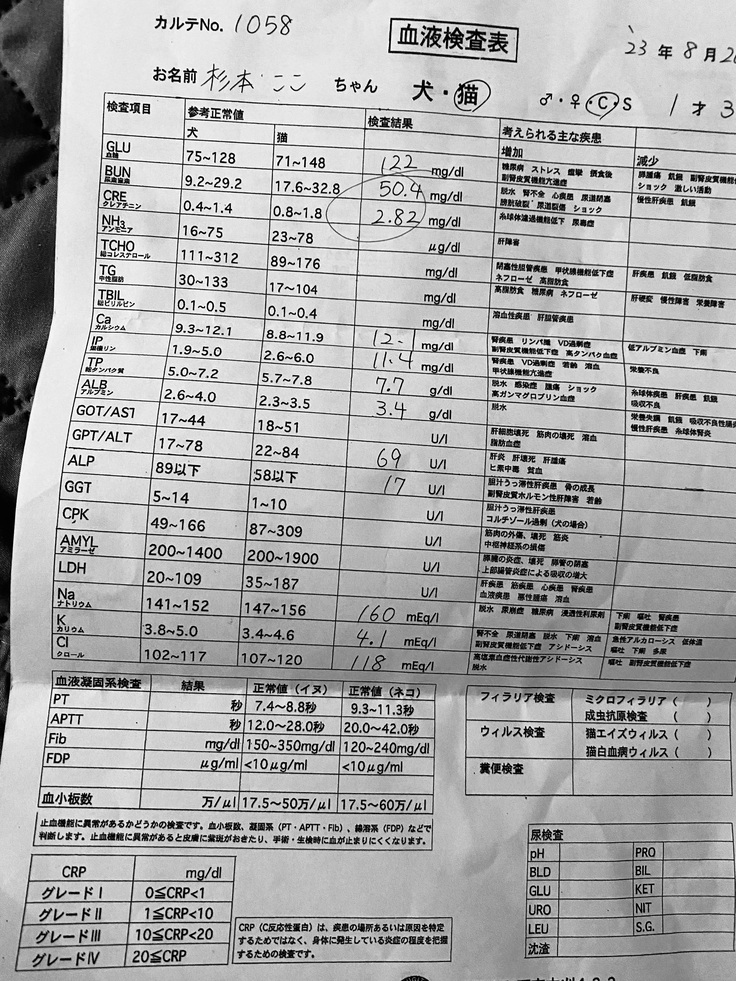 カルテNo. 1058
血液検査表
23 年 8 月
お名前 杉本 ここ ちゃん 犬・猫 ♂・♀・C・S 1才3
検査項目 参考正常値 検査結果 考えられる主な疾患
犬 猫 増加 減少
GLU 血糖 75~128 71~148 122 mg/dl 糖尿病 ストレス 痙攣 摂食後 副腎皮質機能亢進症
BUN 尿素窒素 9.2~29.2 17.6~32.8 50.4 mg/dl 脱水 腎不全 心疾患 尿道閉塞 膀胱破裂 尿道裂傷 ショック 慢性肝疾患 飢餓
CRE クレアチニン 0.4~1.4 0.8~1.8 2.82 mg/dl 糸球体濾過機能低下 尿毒症
NH₃ アンモニア 16~75 23~78 μg/dl 肝障害
TCHO 総コレステロール 111~312 89~176 mg/dl 閉塞性胆管疾患 甲状腺機能低下症 ネフローゼ 高脂肪食 肝疾患 飢餓 低脂肪食
TG 中性脂肪 30~133 17~104 mg/dl 高脂肪食 糖尿病 ネフローゼ 肝硬変 慢性障害 栄養障害
TBIL 総ビリルビン 0.1~0.5 0.1~0.4 mg/dl 溶血性疾患 肝胆管疾患
Ca カルシウム 9.3~12.1 8.8~11.9 12.1 mg/dl 腎疾患 リンパ腫 VD過剰症 副腎皮質機能低下症 高タンパク血症 低アルブミン血症 下痢
IP 無機リン 1.9~5.0 2.6~6.0 11.4 mg/dl 腎疾患 VD過剰症 若齢 溶血 甲状腺機能亢進症 栄養不良
TP 総タンパク質 5.0~7.2 5.7~7.8 7.7 g/dl 脱水 感染症 腫瘍 ショック 高ガンマグロブリン血症 糸球体疾患 肝疾患 飢餓 吸収不良
ALB アルブミン 2.6~4.0 2.3~3.5 3.4 g/dl 脱水 栄養失調 飢餓 吸収不良性腸炎 慢性肝疾患 糸球体腎炎
GOT/AST 17~44 18~51 U/l 肝細胞壊死 筋肉の壊死 溶血 脂肪血症
GPT/ALT 17~78 22~84 69 U/l 肝炎 肝壊死 肝腫瘍 ヒ素中毒 貧血
ALP 89以下 58以下 17 U/l 胆汁うっ滞性肝疾患 骨の成長 副腎皮質ホルモン性肝障害 若齢
GGT 5~14 1~10 U/l 胆汁うっ滞性肝疾患 コルチゾール過剰（犬の場合）
CPK 49~166 87~309 U/l 筋肉の外傷、壊死 筋炎 中枢神経系の損傷
AMYL アミラーゼ 200~1400 200~1900 U/l 膵臓の炎症、壊死 膵管の閉塞 上部腸管炎症による吸収の増大
LDH 20~109 35~187 U/l 肝疾患 筋疾患 心疾患 腎疾患 血液疾患 悪性腫瘍 溶血
Na ナトリウム 141~152 147~156 160 mEq/l 脱水 尿崩症 糖尿病 浸透性利尿剤 下痢 嘔吐 腎疾患 副腎皮質機能低下症
K カリウム 3.8~5.0 3.4~4.6 4.1 mEq/l 腎不全 尿道閉塞 脱水 下痢 溶血 副腎皮質機能低下症 アシドーシス 急性アルカローシス 低体温 嘔吐 下痢 多尿
Cl クロール 102~117 107~120 118 mEq/l 高塩素血症性代謝性アシドーシス 脱水 嘔吐 副腎皮質機能低下症
血液凝固系検査 結果 正常値（イヌ） 正常値（ネコ）
PT 秒 7.4~8.8秒 9.3~11.3秒
APTT 秒 12.0~28.0秒 20.0~42.0秒
Fib mg/dl 150~350mg/dl 120~240mg/dl
FDP μg/ml <10μg/ml <10μg/ml
血小板数 万/μl 17.5~50万/μl 17.5~60万/μl
止血機能に異常があるかどうかの検査です。血小板数、凝固系（PT・APTT・Fib）、線溶系（FDP）などで
判断します。止血機能に異常があると皮膚に紫斑がおきたり、手術・生検時に血が止まりにくくなります。
フィラリア検査 ミクロフィラリア（ ）
成虫抗原検査（ ）
ウィルス検査 猫エイズウィルス（ ）
猫白血病ウィルス（ ）
糞便検査
CRP mg/dl
グレードⅠ 0≦CRP<1
グレードⅡ 1≦CRP<10
グレードⅢ 10≦CRP<20
グレードⅣ 20≦CRP
CRP（C反応性蛋白）は、疾患の場所あるいは原因を特定
するためではなく、身体に発生している炎症の程度を把握
するための検査です。
尿検査
pH PRO
BLD BIL
GLU KET
URO NIT
LEU S.G.
沈渣